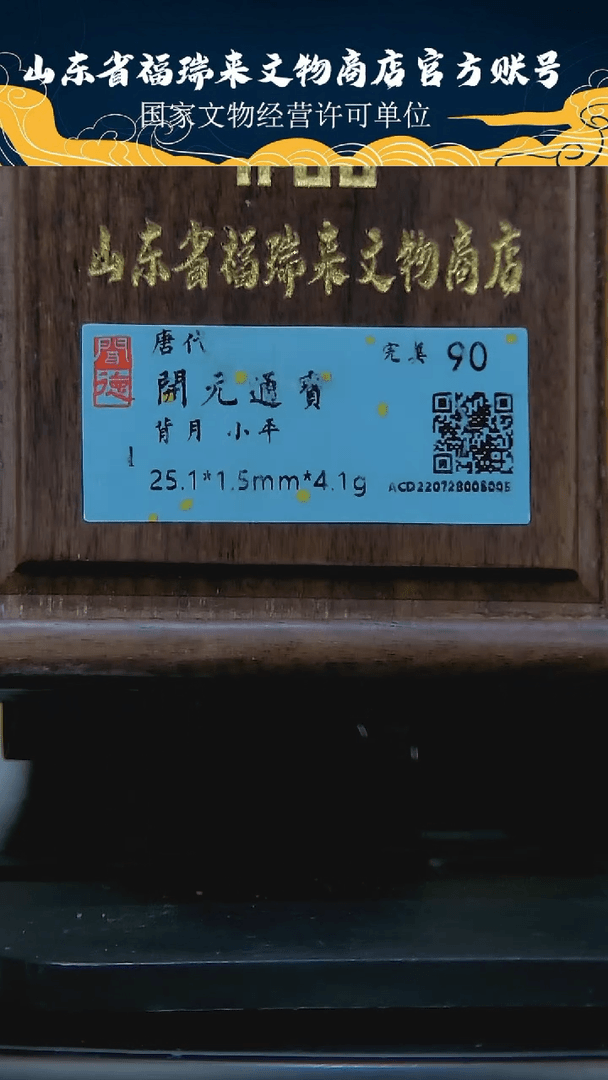 山东省福瑞来文物商店官方账号
国家文物经营许可单位
山东省福瑞来文物商店
聞德
唐代
完美 90
開元通寶
背月 小平
1
25.1*1.5mm*4.1g